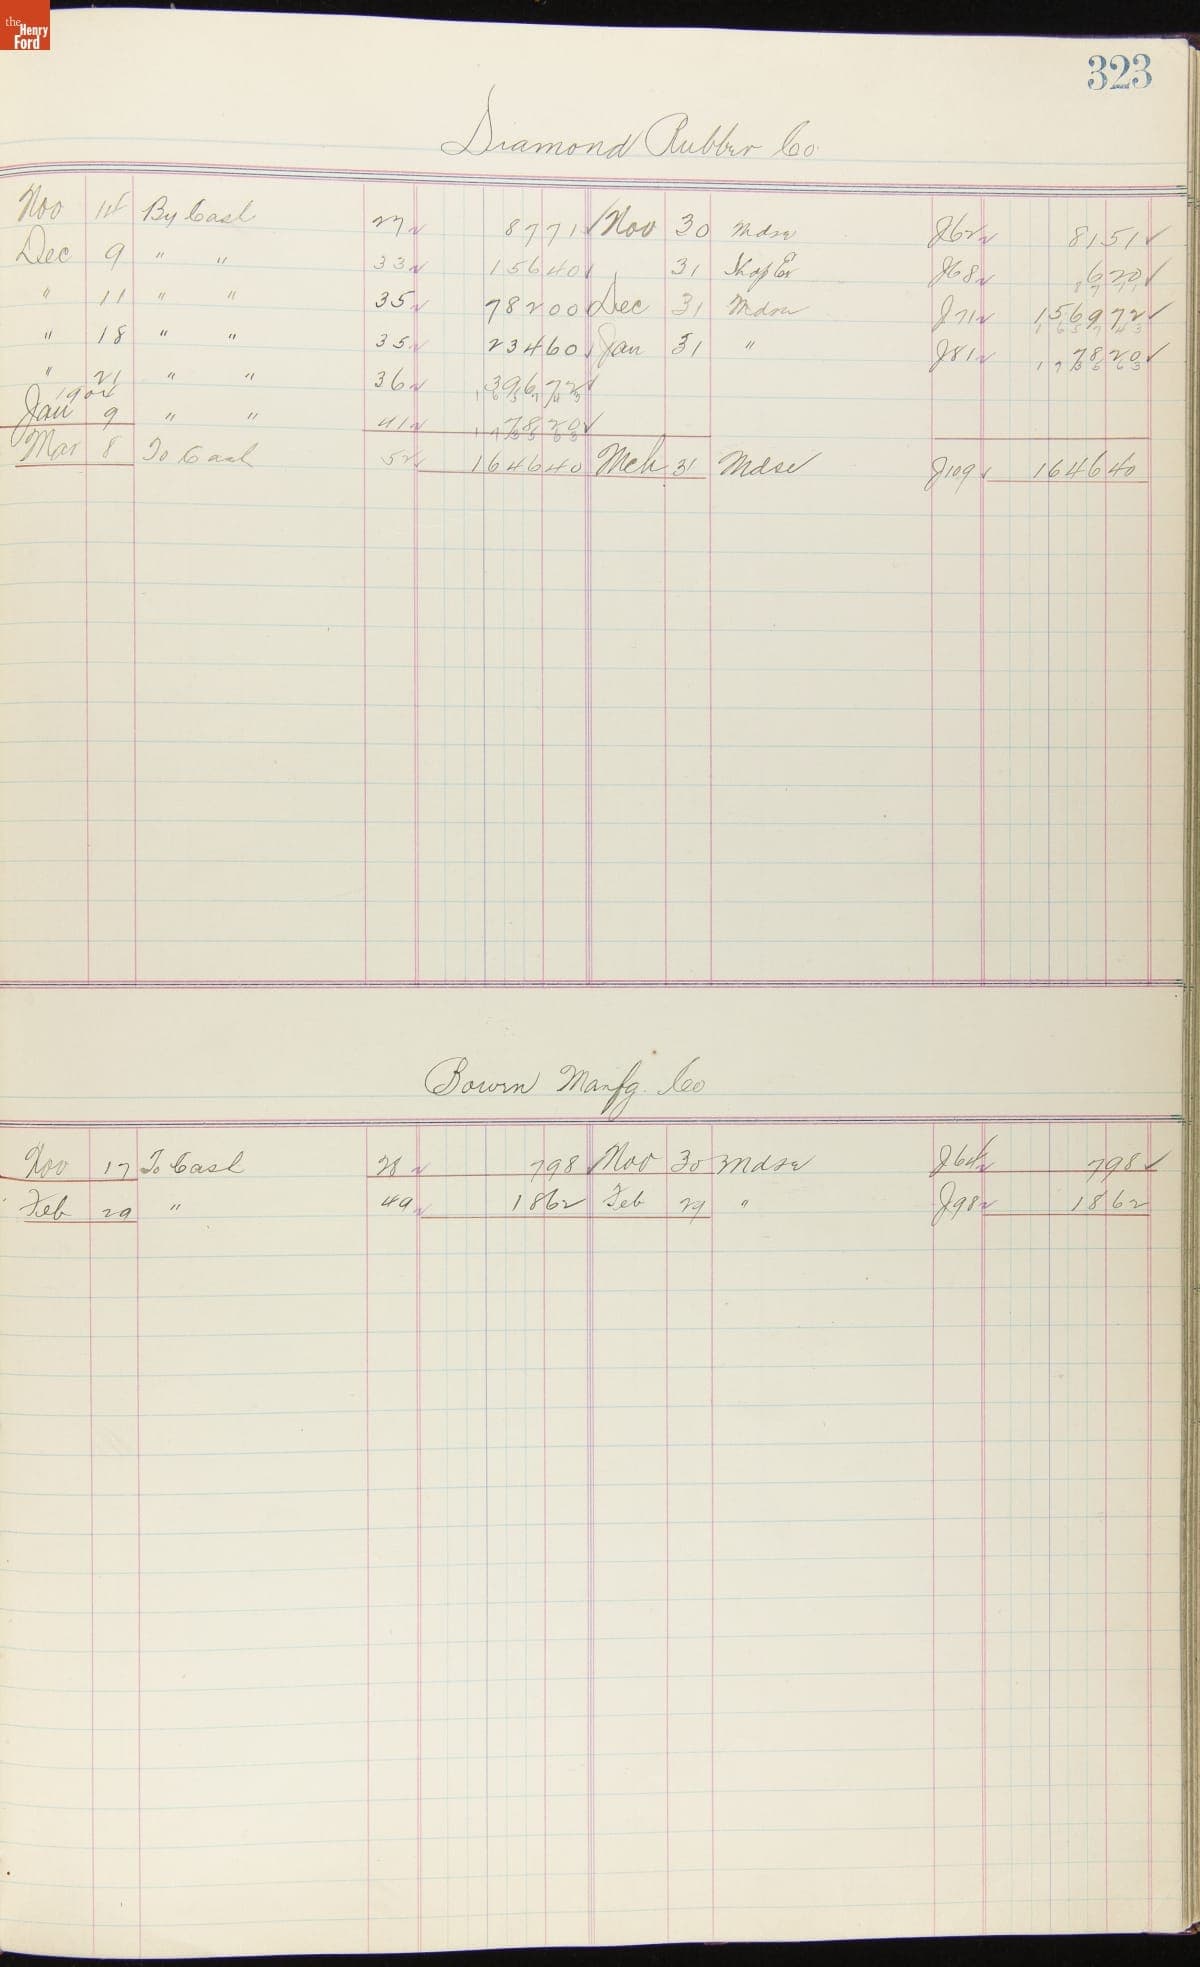 the
Henry
Ford
323
Diamond Rubber Co
Nov 14 By Cash 27 8771 Nov 30 Mdse J62 8151
Dec 9 " " 33 15640 31 Shop Ex J68 620
8771
" 11 " " 35 78200 Dec 31 Mdse J71 156972
165743
" 18 " " 35 23460 Jan 31 " J81 7820
173563
" 21 " " 36 39672
165743
1904
Jan 9 " " 41 7820
173563
Mar 8 To Cash 52 164640 Mch 31 Mdse J109 164640
Bowen Manfg. Co
Nov 17 To Cash 28 798 Nov 30 Mdse J64 798
Feb 29 " 49 1862 Feb 29 " J98 1862